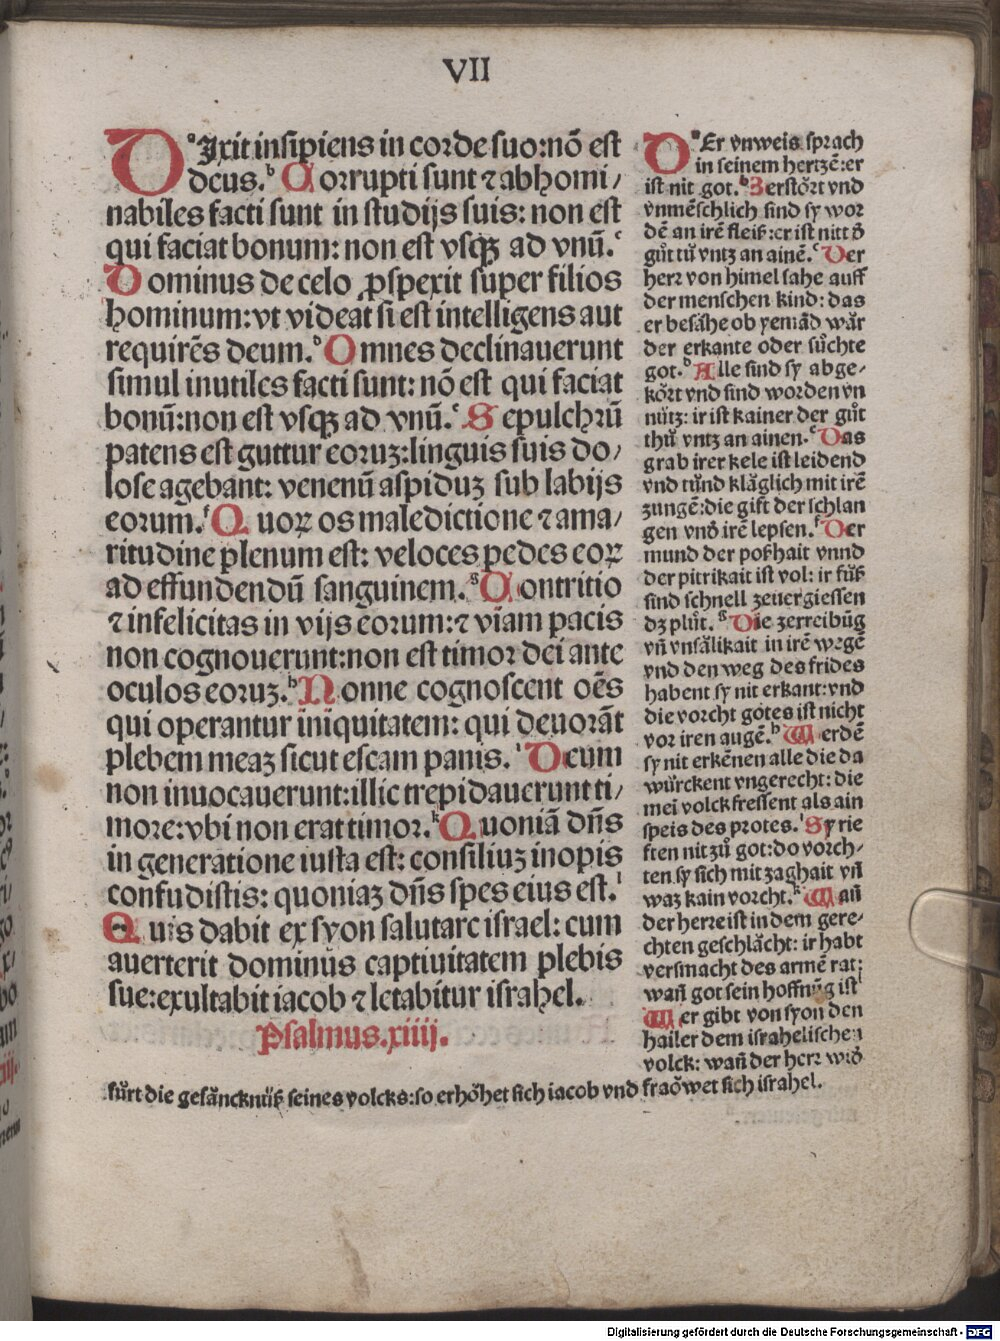 VII
Dixit insipiens in corde suo: nō est
deus. Corrupti sunt ⁊ abhomi/
nabiles facti sunt in studijs suis: non est
qui faciat bonum: non est vsqꝫ ad vnū.
Dominus de celo ꝓspexit super filios
hominum: vt videat si est intelligens aut
requirēs deum. Omnes declinauerunt
simul inutiles facti sunt: nō est qui faciat
bonū: non est vsqꝫ ad vnū. Sepulchrū
patens est guttur eoruꝫ: linguis suis do/
lose agebant: venenū aspiduꝫ sub labijs
eorum. Quoꝝ os maledictione ⁊ ama/
ritudine plenum est: veloces pedes eoꝝ
ad effundendū sanguinem. Contritio
⁊ infelicitas in vijs eorum: ⁊ viam pacis
non cognouerunt: non est timor dei ante
oculos eoruꝫ. Nonne cognoscent oēs
qui operantur iniquitatem: qui deuorāt
plebem meaꝫ sicut escam panis. Deum
non inuocauerunt: illic trepidauerunt ti/
more: vbi non erat timor. Quoniā dn̄s
in generatione iusta est: consiliuꝫ inopis
confudistis: quoniaꝫ dn̄s spes eius est.
Quis dabit ex syon salutare israel: cum
auerterit dominus captiuitatem plebis
sue: exultabit iacob ⁊ letabitur israhel.
Psalmus. xiiij.
Der vnweis sprach
in seinem hertzē: er
ist nit got. Zerstört vnd
vnmēschlich sind sy wor
dē an irē fleiß: er ist nitt ð
gůt tů vntz an ainē. Der
herr von himel sahe auff
der menschen kind: das
er besähe ob yemād wär
der erkante oder sůchte
got. Alle sind sy abge/
kört vnd sind worden vn
nütz: ir ist kainer der gůt
thů vntz an ainen. Das
grab irer kele ist leidend
vnd tůnd kläglich mit irē
zungē: die gift der schlan
gen vnð irē lepsen. Der
mund der poßhait vnnd
der pitrikait ist vol: ir füß
sind schnell zeuergiessen
dꝫ plůt. Die zerreibūg
vn̄ vnsälikait in irē wegē
vnd den weg des frides
habent sy nit erkant: vnd
die vorcht gotes ist nicht
vor iren augē. Werdē
sy nit erkēnen alle die da
würckent vngerecht: die
mei volck fressent als ain
speis des protes. Sy rie
ften nit zů got: do vorch/
ten sy sich mit zaghait vn̄
waꝫ kain vorcht. Wan̄
der herre ist in dem gere/
chten geschlächt: ir habt
versmacht des armē rat:
wan̄ got sein hoffnūg ist
Wer gibt von syon den
hailer dem israhelischen
volck: wan̄ der herr wið
fürt die gefäncknüß seines volcks: so erhöhet sich iacob vnd fraöwet sich israhel.
Digitalisierung gefördert durch die Deutsche Forschungsgemeinschaft - DFG